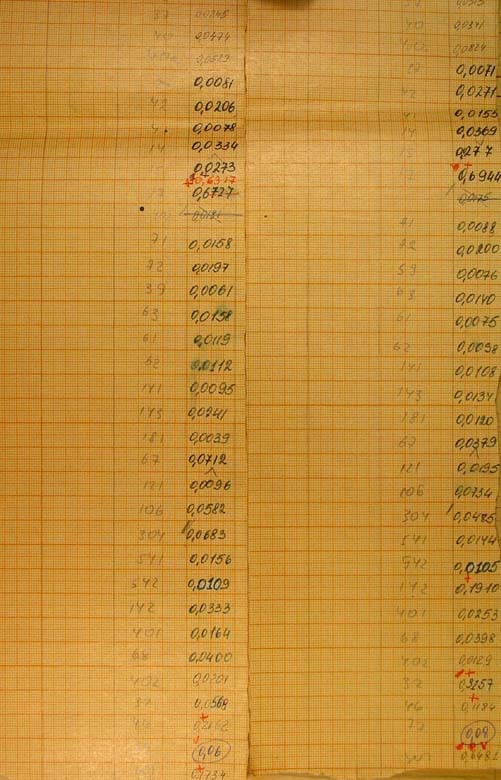 37 0,0245
40 0,0474
0,0081
42 0,0206
0,0078
14 0,0334
0,0273
0,6317
0,6727
71 0,0158
72 0,0197
39 0,0061
63 0,0138
61 0,0119
62 0,0112
141 0,0095
143 0,0241
181 0,0039
67 0,0712
121 0,0096
106 0,0582
304 0,0683
541 0,0156
542 0,0109
142 0,0333
401 0,0164
68 0,0400
402 0,0201
37 0,0569
46 0,2162
0,06
40 0,0341
402 0,0824
0,0071
42 0,0271
41 0,0153
14 0,0369
0,277
0,6944
0,0175
71 0,0088
72 0,0200
59 0,0076
63 0,0140
61 0,0075
62 0,0098
141 0,0108
143 0,0134
181 0,0120
67 0,0379
121 0,0195
106 0,0734
304 0,0485
541 0,0144
542 0,0105
142 0,1910
401 0,0253
68 0,0398
402 0,0129
37 0,3257
46 0,1184
72 0,09